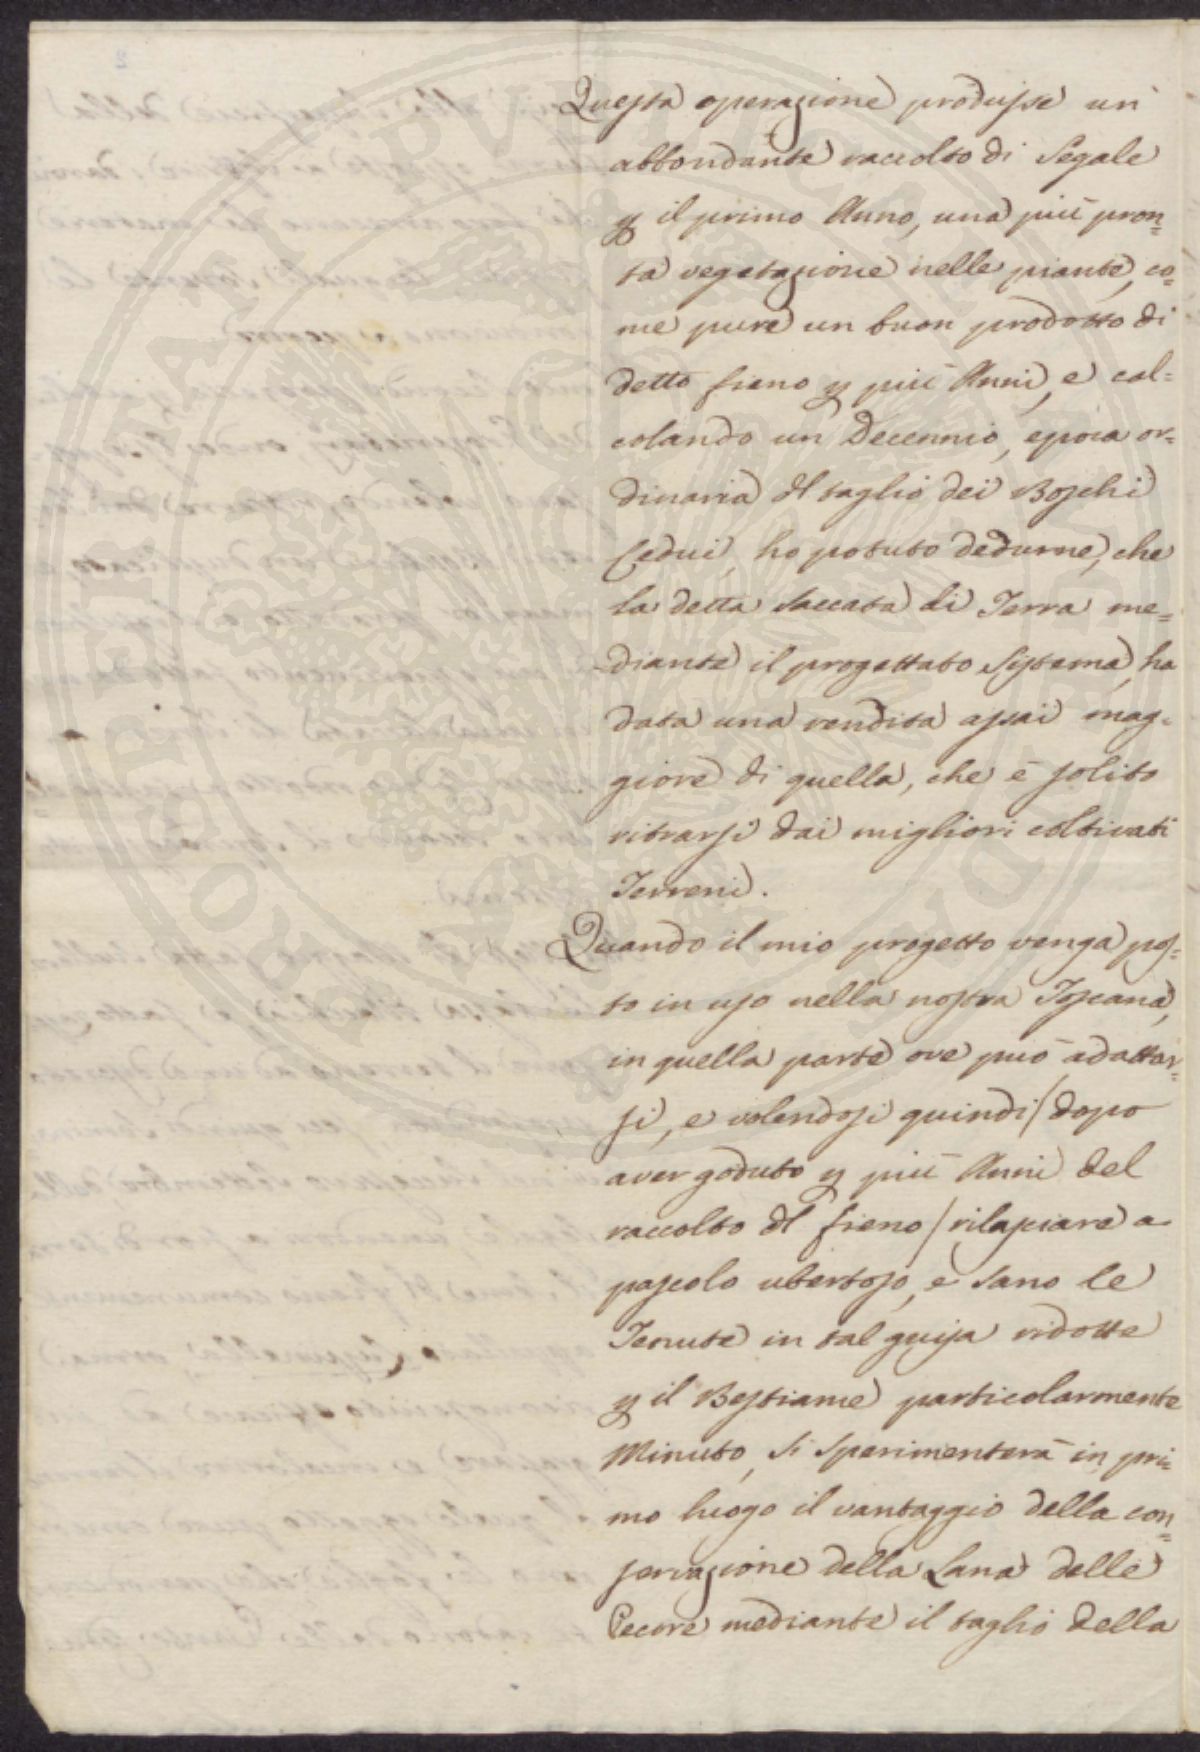 Questa operazione produsse un'
abbondante raccolto di Segale
p il primo Anno, una più pron=
ta vegetazione nelle piante, co=
me pure un buon prodotto di
detto fieno p più Anni, e cal=
colando un Decennio, epoca or=
dinaria dl taglio dei Boschi
Cedui, ho potuto dedurne, che
la detta Saccata di Terra me=
diante il progettato Sistema, ha
data una rendita assai mag=
giore di quella, che è solito
ritrarsi dai migliori coltivati
Terreni.
Quando il mio progetto venga pos=
to in uso nella nostra Toscana,
in quella parte ove può adattar=
si, e volendosi quindi / dopo
aver goduto p più Anni del
raccolto dl fieno / rilasciare a
pascolo ubertoso, e sano le
Tenute in tal guisa ridotte
p il Bestiame particolarmente
Minuto, si sperimenterà in pri=
mo luogo il vantaggio della con=
servazione della Lana delle
Pecore mediante il taglio della
PROSPERITATI PUBLICAE AUGENDAE